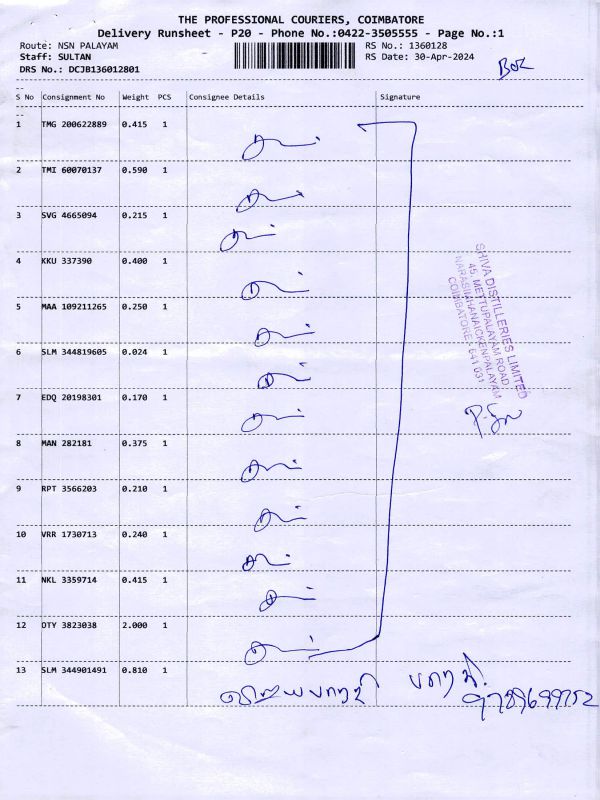 THE PROFESSIONAL COURIERS, COIMBATORE
Delivery Runsheet - P20 - Phone No.:0422-3505555 - Page No.:1
Route: NSN PALAYAM RS No.: 1360128
Staff: SULTAN RS Date: 30-Apr-2024
DRS No.: DCJB136012801
S No Consignment No Weight PCS Consignee Details Signature
1 TMG 200622889 0.415 1
2 TMI 60070137 0.590 1
3 SVG 4665094 0.215 1
4 KKU 337390 0.400 1
5 MAA 109211265 0.250 1
6 SLM 344819605 0.024 1
7 EDQ 20198301 0.170 1
8 MAN 282181 0.375 1
9 RPT 3566203 0.210 1
10 VRR 1730713 0.240 1
11 NKL 3359714 0.415 1
12 DTY 3823038 2.000 1
13 SLM 344901491 0.810 1
SHIVA DISTILLERIES LIMITED
45, METTUPALAYAM ROAD,
NARASIMHANAICKENPALAYAM
COIMBATORE - 641 031